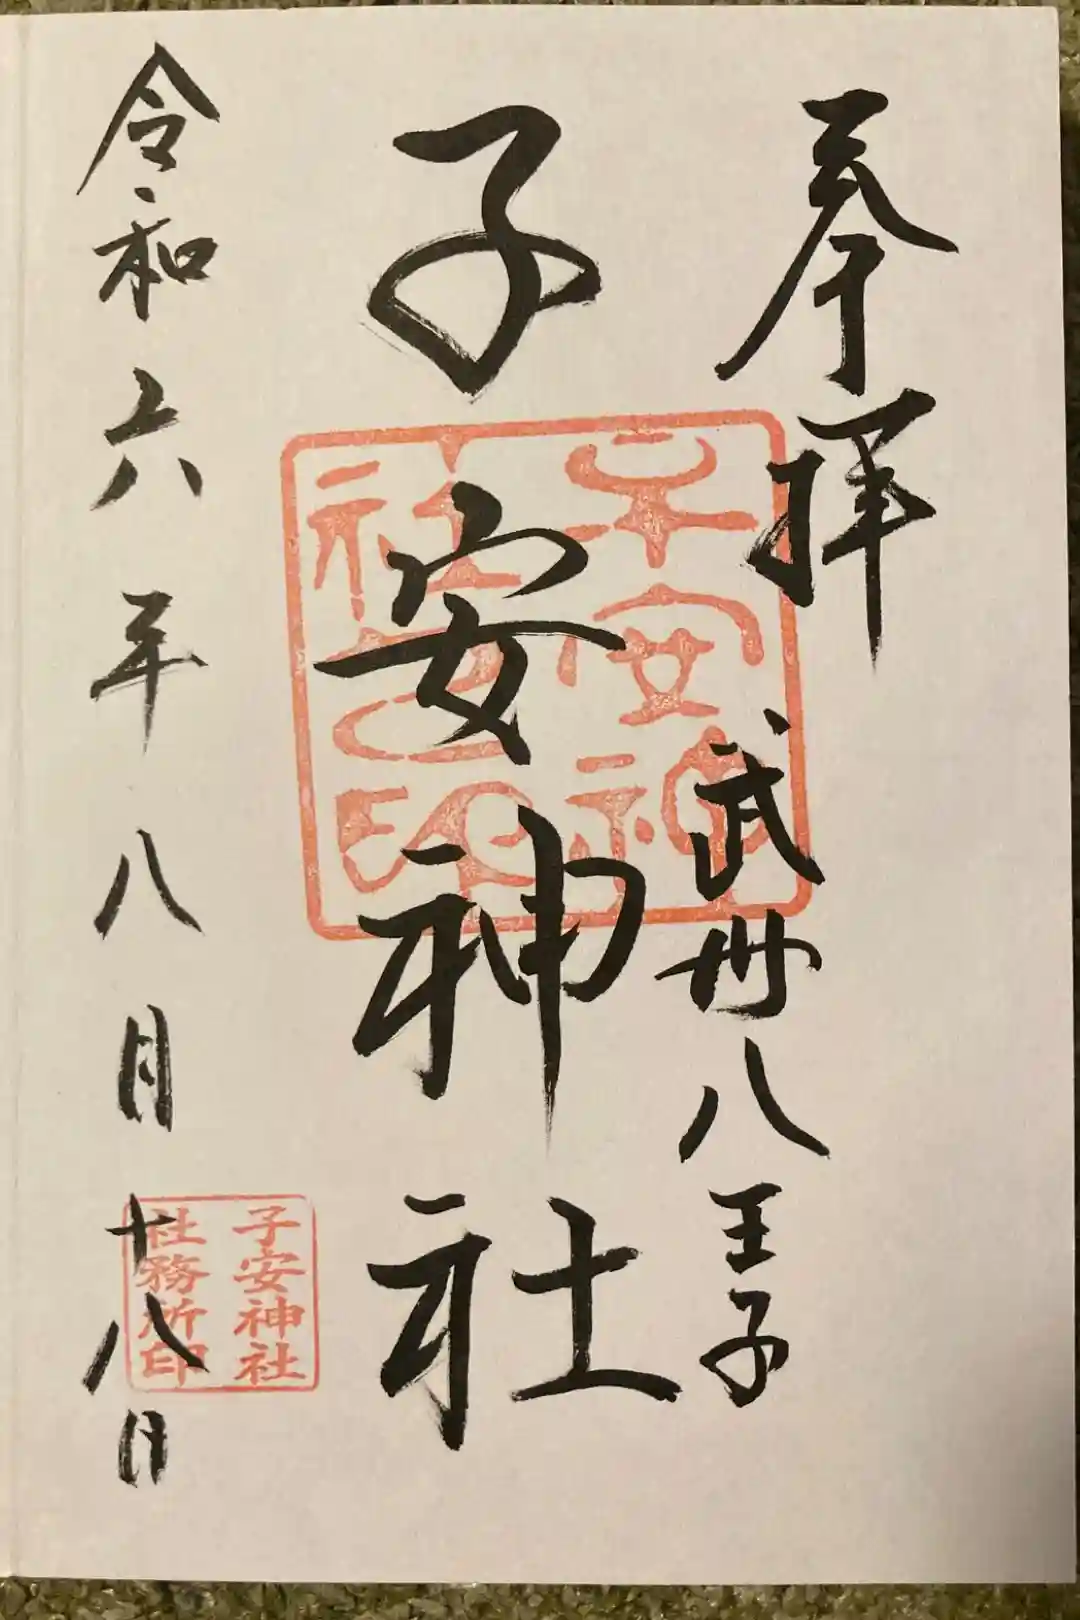 奉拝
武州八王子
子安神社
子安神
社之印
令和六年八月十八日
子安神社
社務所印